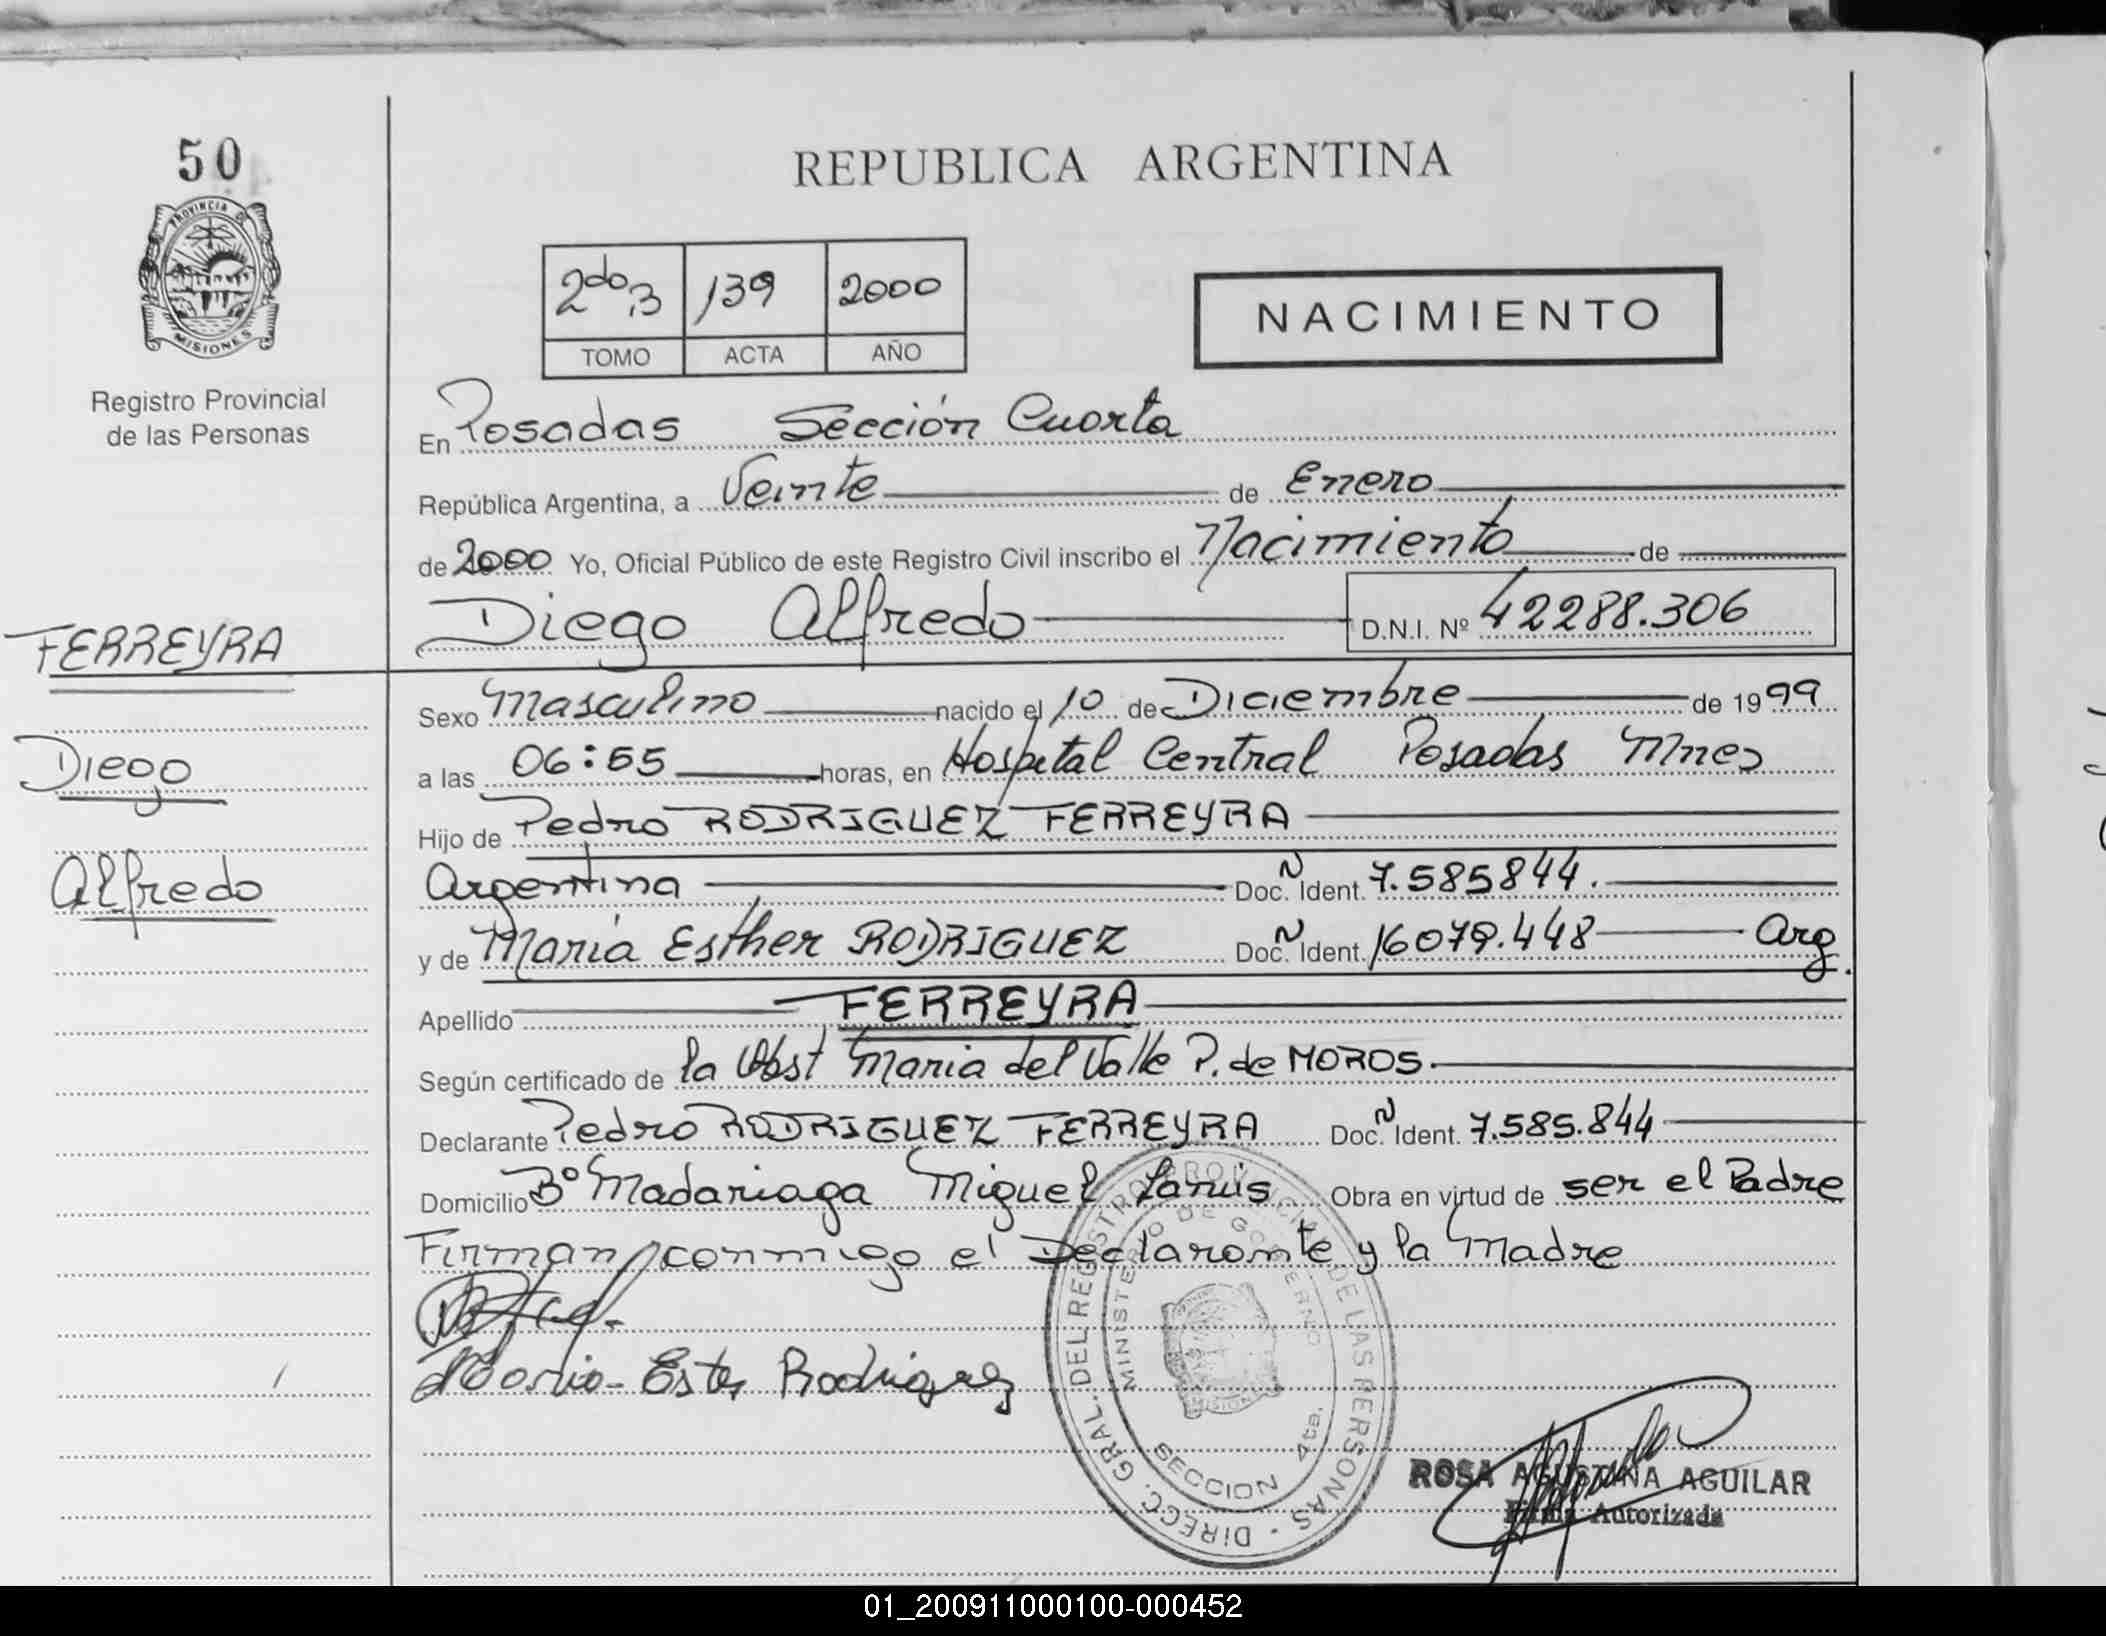 50
PROVINCIA DE
MISIONES
Registro Provincial
de las Personas
REPUBLICA ARGENTINA
2do,3 139 2000
TOMO ACTA AÑO
NACIMIENTO
En Posadas Sección Cuarta
República Argentina, a Veinte de Enero
de 2000 Yo, Oficial Público de este Registro Civil inscribo el Nacimiento de
Diego Alfredo D.N.I. Nº 42288.306
FERREYRA
Diego
Alfredo
Sexo Masculino nacido el 10 de Diciembre de 1999
a las 06:55 horas, en Hospital Central Posadas Mnes
Hijo de Pedro RODRIGUEZ FERREYRA
Argentina Doc. N Ident. 7.585844.
y de Maria Esther RODRIGUEZ Doc. N Ident. 16079.448 Arg.
Apellido FERREYRA
Según certificado de la Obst Maria del Valle P. de MOROS.
Declarante Pedro RODRIGUEZ FERREYRA Doc. N Ident. 7.585.844
Domicilio Bº Madariaga Miguel Lanus Obra en virtud de ser el Padre
Firman conmigo el Declarante y la Madre
Rodriguez
DIRECC. GRAL. DEL REGISTRO PROVINCIAL DE LAS PERSONAS -
MINISTERIO DE GOBIERNO
SECCION 4ta.
ROSA AGUSTINA AGUILAR
Firma Autorizada
01_200911000100-000452